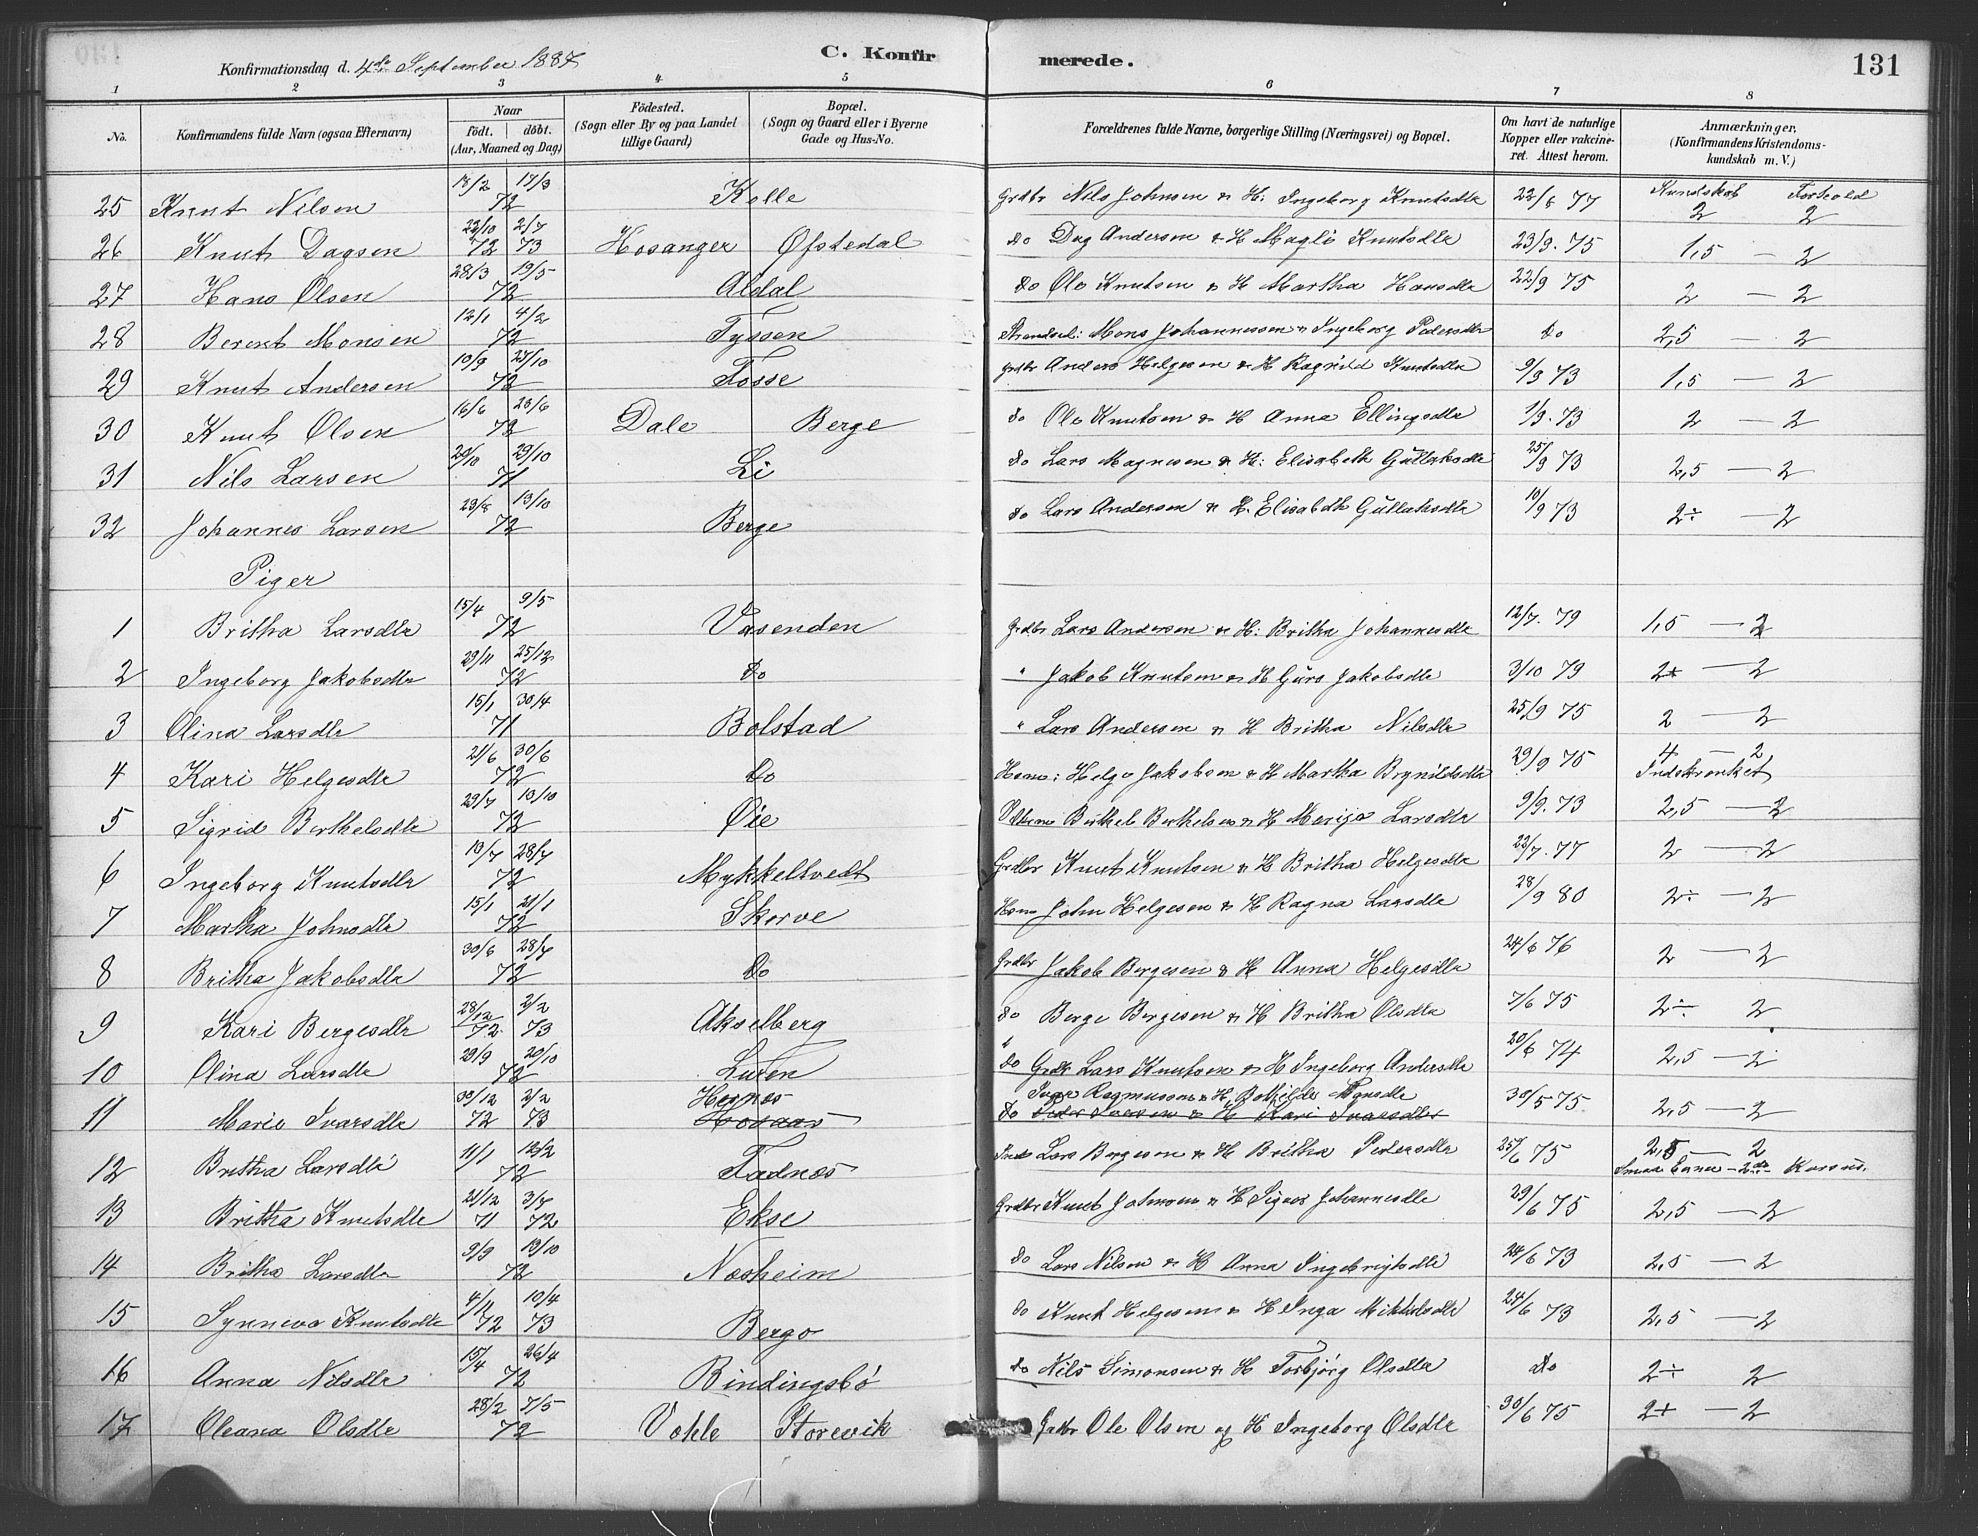 Konfirmationsdag d. 4de September 1887
C. Konfirmerede.
131
1 2 3 4 5 6 7 8
No. Konfirmandens fulde Navn (ogsaa Efternavn) Naar födt. döbt. (Aar, Maaned og Dag) Födested. (Sogn eller By og paa Landet tillige Gaard) Bopæl. (Sogn og Gaard eller i Byerne Gade og Hus-No. Forældrenes fulde Navne, borgerlige Stilling (Næringsvei) og Bopæl. Om havt de naturlige Kopper eller vakcineret. Attest herom. Anmærkninger, (Konfirmandens Kristendomskundskab m. V.)
Kundskab Forhold
25 Knut Nilsen 18/2 17/3 72 Kolle Grdbr Nils Johnsen & H: Ingeborg Knutsdtr 22/8 77 2 2
26 Knut Dagsen 22/10 72 2/7 73 Hosanger Øfstedal do Dag Andersen & H Magli Knutsdtr 23/9. 75 1,5 — 2
27 Hans Olsen 28/3 19/5 72 Aldal do Ole Knutsen & H Martha Hansdtr 22/9 75 2 — 2
28 Berent Monsen 12/1 4/2 72 Tyssen Strandsid: Mons Johannessen & Ingeborg Pedersdtr do 2,5 — 2
29 Knut Andersen 10/9 27/10 72 Fosse Grdbr Anders Helgesen & H Ragnild Knutsdtr 9/9 73 1,5 — 2
30 Knut Olsen 16/6 23/6 72 Dale Berge do Ole Knutsen & H Anna Ellingsdtr 1/9. 73 2 — 2
31 Nils Larsen 20/10 29/10 71 Li do Lars Magnesen & H: Elisabeth Gullaksdtr 25/9 73 2,5 — 2
32 Johannes Larsen 23/8 13/10 72 Berge do Lars Andersen & H. Elisabeth Gullaksdtr 10/9 73 2÷ — 2
Piger
1 Britha Larsdtr 15/4 9/5 72 Vasenden Grdbr Lars Andersen & H: Britha Johannesdtr 12/7. 79 1,5 — 2
2 Ingeborg Jakobsdtr 29/11 25/12 72 do " Jakob Knutsen & H Guro Jakobsdtr 3/10 79 2+ — 2
3 Olina Larsdtr 15/1 30/4 71 Bolstad " Lars Andersen & H Britha Nilsdtr 25/9 75 2 — 2
4 Kari Helgesdtr 21/6 30/6 72 do Hsm: Helge Jakobsen & H Martha Brynildsdtr 29/9 75 4 — 2 Indskrænket
5 Sigrid Berthelsdtr 29/7 13/10 72 Øie Berthel Berthelsen & H Merija Larsdtr 9/9. 73 2,5 — 2
6 Ingeborg Knutsdtr 10/7 28/7 72 Mykkeltvedt Grdbr Knut Knutsen & H Britha Helgesdtr 22/7. 77 2 — 2
7 Martha Johnsdtr 15/1 21/1 72 Skorve Hsm John Helgesen & H Ragna Larsdtr 28/9 80 2÷ — 2
8 Britha Jakobsdtr 30/6 28/7 72 do Grdbr Jakob Bergesen & H Anna Helgesdtr 24/6 76 2 — 2
9 Kari Bergesdtr 28/12 72 2/2 73 Akselberg do Berge Bergesen & H Britha Olsdtr 7/6 75 2÷ 2
10 Olina Larsdtr 29/9 20/10 72 Luten do Grdb Lars Knutsen & H Ingeborg Andersdtr 20/6 74 2,5 — 2
11 Marie Ivarsdtr 30/12 72 2/2 73 Hernes Hovaas do Ivar Rasmussen & H. Bothilde Monsdtr Peder Iversen & H Kari Ivarsdtr 30/5 75 2,5 — 2
12 Britha Larsdtr 11/1 12/2 72 Fadnæs Inds Lars Bergesen & H Britha Pedersdtr 25/6 75 2,5 — 2
13 Britha Knutsdtr 21/12 71 3/7 72 Ekse Grdbr Knut Johnsen & H Signe Johannesdtr 29/6 75 2,5 — 2
14 Britha Larsdtr 9/9 13/10 72 Næsheim do Lars Nilsen & H Anna Ingebrigtsdtr 24/6 73 2,5 — 2
15 Synneva Knutsdtr 4/11 72 10/4 73 Berge do Knut Helgesen & H Inga Mikkelsdtr 24/6 73 2,5 — 2
16 Anna Nilsdtr 15/4 26/4 72 Bindingsbø do Nils Simonsen & H Torbjørg Olsdtr do 2÷ 2
17 Oleana Olsdtr 28/2 7/5 72 Vohle Storevik Grdbr Ole Olsen og H Ingeborg Olsdtr 30/6 75 2+ — 2